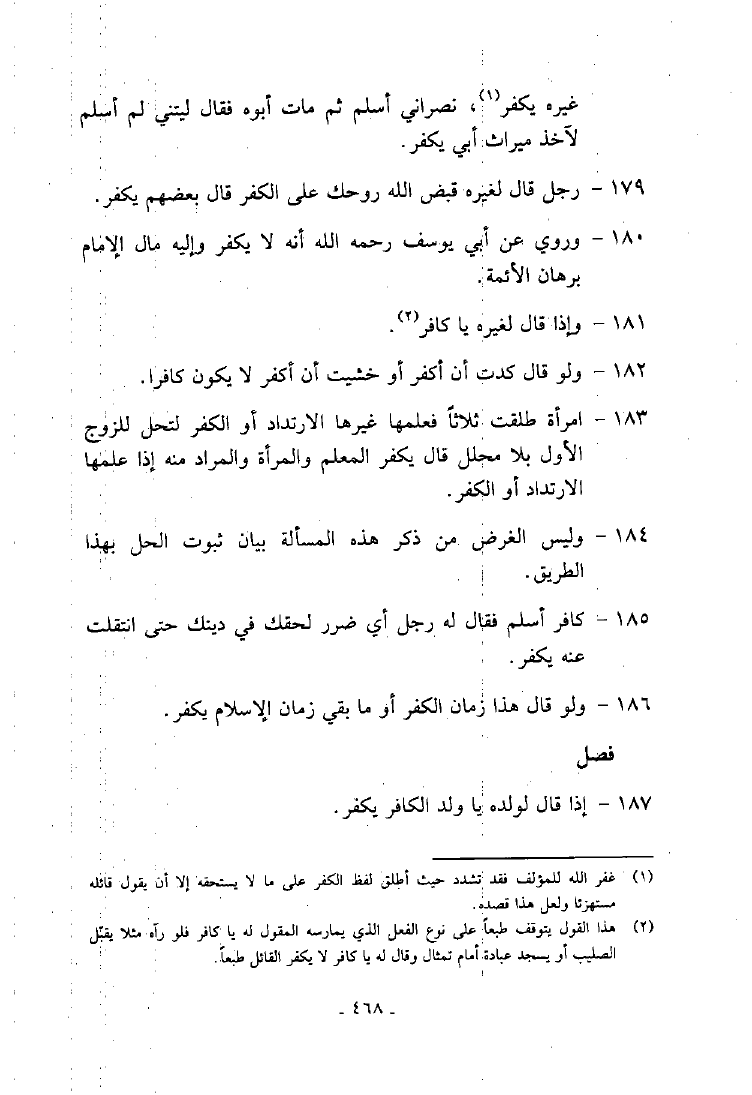 غيره يكفر(١)، نصراني أسلم ثم مات أبوه فقال ليتني لم أسلم
لآخذ ميراث أبي يكفر.
١٧٩ - رجل قال لغيره قبض الله روحك على الكفر قال بعضهم يكفر.
١٨٠ - وروي عن أبي يوسف رحمه الله أنه لا يكفر وإليه مال الإمام
برهان الأئمة.
١٨١ - وإذا قال لغيره يا كافر(٢).
١٨٢ - ولو قال كدت أن أكفر أو خشيت أن أكفر لا يكون كافرا.
١٨٣ - امرأة طلقت ثلاثاً فعلمها غيرها الارتداد أو الكفر لتحل للزوج
الأول بلا محلل قال يكفر المعلم والمرأة والمراد منه إذا علمها
الارتداد أو الكفر.
١٨٤ - وليس الغرض من ذكر هذه المسألة بيان ثبوت الحل بهذا
الطريق.
١٨٥ - كافر أسلم فقال له رجل أي ضرر لحقك في دينك حتى انتقلت
عنه يكفر.
١٨٦ - ولو قال هذا زمان الكفر أو ما بقي زمان الإسلام يكفر.
فصل
١٨٧ - إذا قال لولده يا ولد الكافر يكفر.
(١) غفر الله للمؤلف فقد تشدد حيث أطلق لفظ الكفر على ما لا يستحقه إلا أن يقول قائله
مستهزئا ولعل هذا قصده.
(٢) هذا القول يتوقف طبعاً على نوع الفعل الذي يمارسه المقول له يا كافر فلو رآه مثلا يقبّل
الصليب أو يسجد عبادة أمام تمثال وقال له يا كافر لا يكفر القائل طبعاً.
- ٤٦٨ -